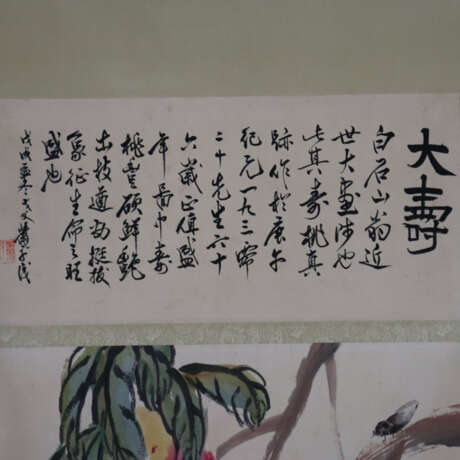 大壽
白石山翁近
世大畫师也
此其壽桃真
跡作於庚午
紀元一九三零
二十先生六十
六歲正值盛
年圖中壽
桃豐碩鮮艷
出枝遒劲挺拔
象征生命之旺
盛也
戊戌